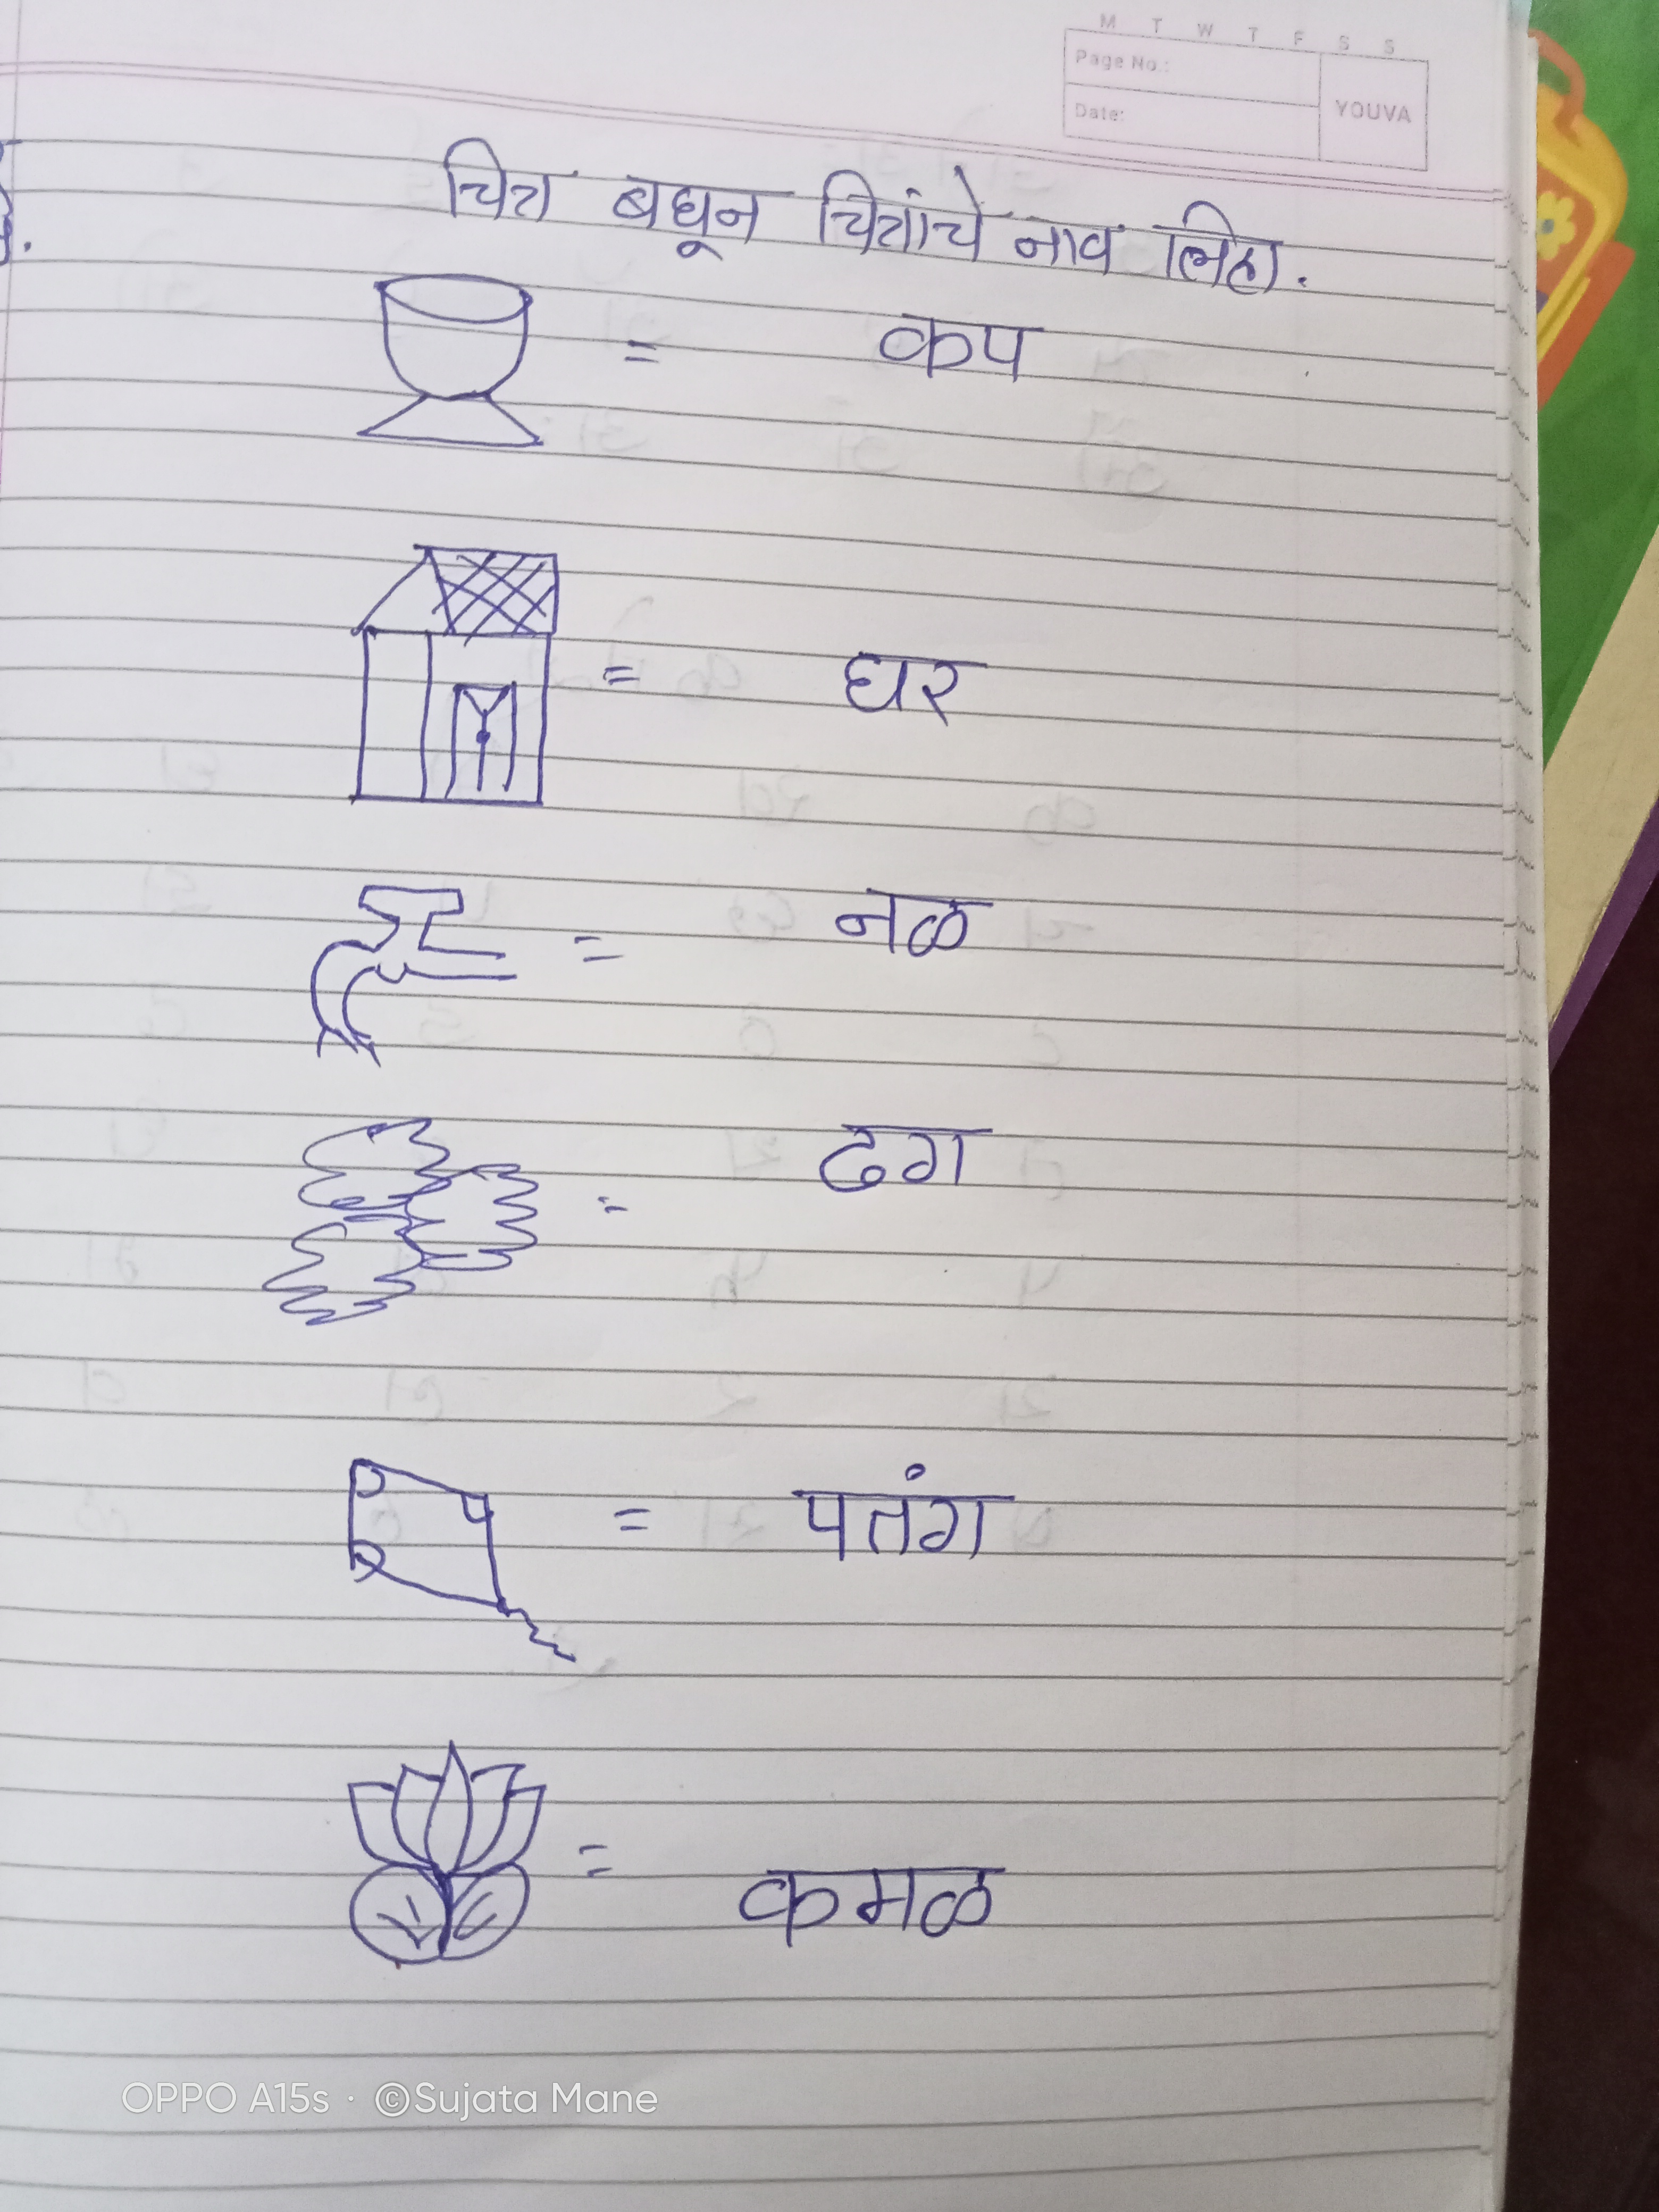 M T W T F S S
Page No.:
Date:
YOUVA
चित्र बघून चित्रांचे नाव लिहा.
= कप
= घर
= नळ
= ढग
= पतंग
= कमळ
OPPO A15s · ©Sujata Mane